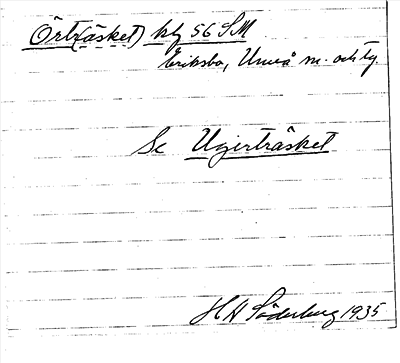 Örträsket) kf 56 SM
Eriksbo, Umeå m. och tg.
Se Ugirträsket
H A Söderberg 1935